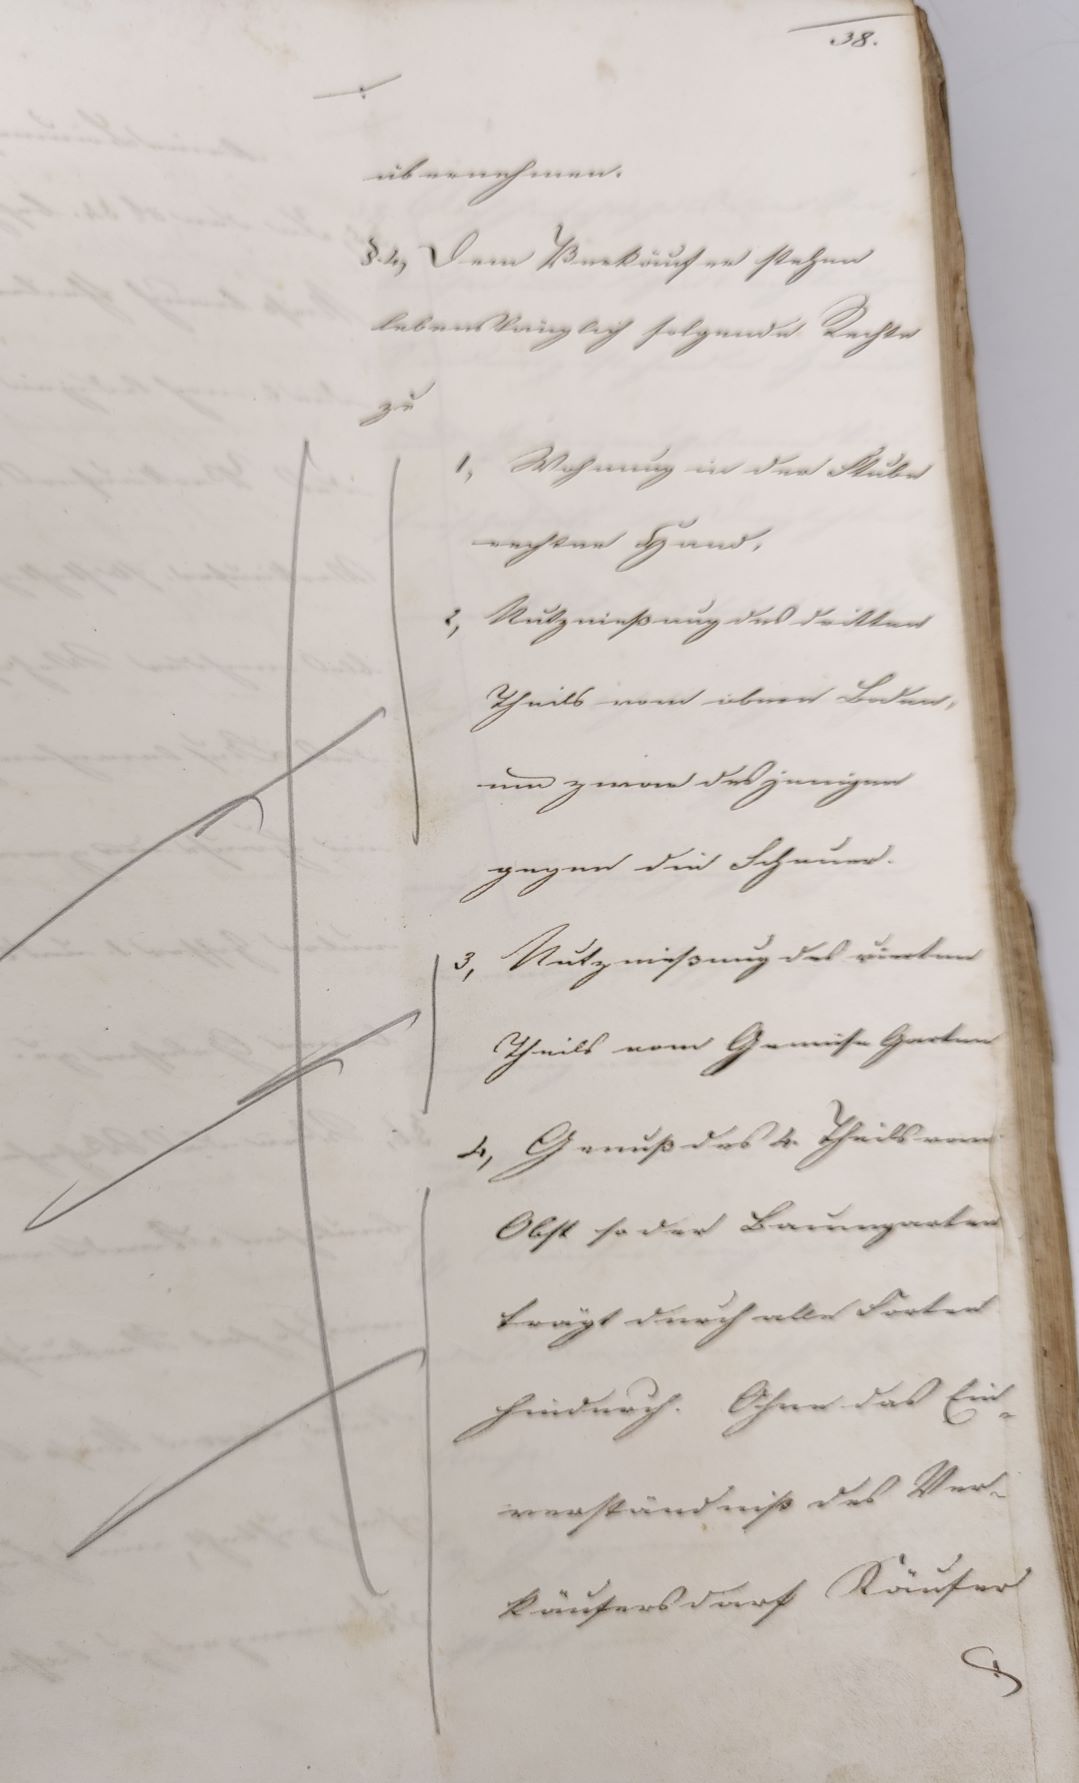 38.
übernehmen.
§. 4, Dem Verkäufer stehen
lebenslänglich folgende Rechte
zu
1, Wohnung in der Stube
rechter Hand,
2, Nutznießung des dritten
Theils vom obern Boden,
und zwar desjenigen
gegen die Scheuer.
3, Nutznießung des vierten
Theils vom Gemüse Garten
4, Genuß des 4. Theils vom
Obst so der Baumgarten
trägt durch alle Sorten
hindurch. Ohne das Ein-
verständniß des Ver-
käufers darf Käufer